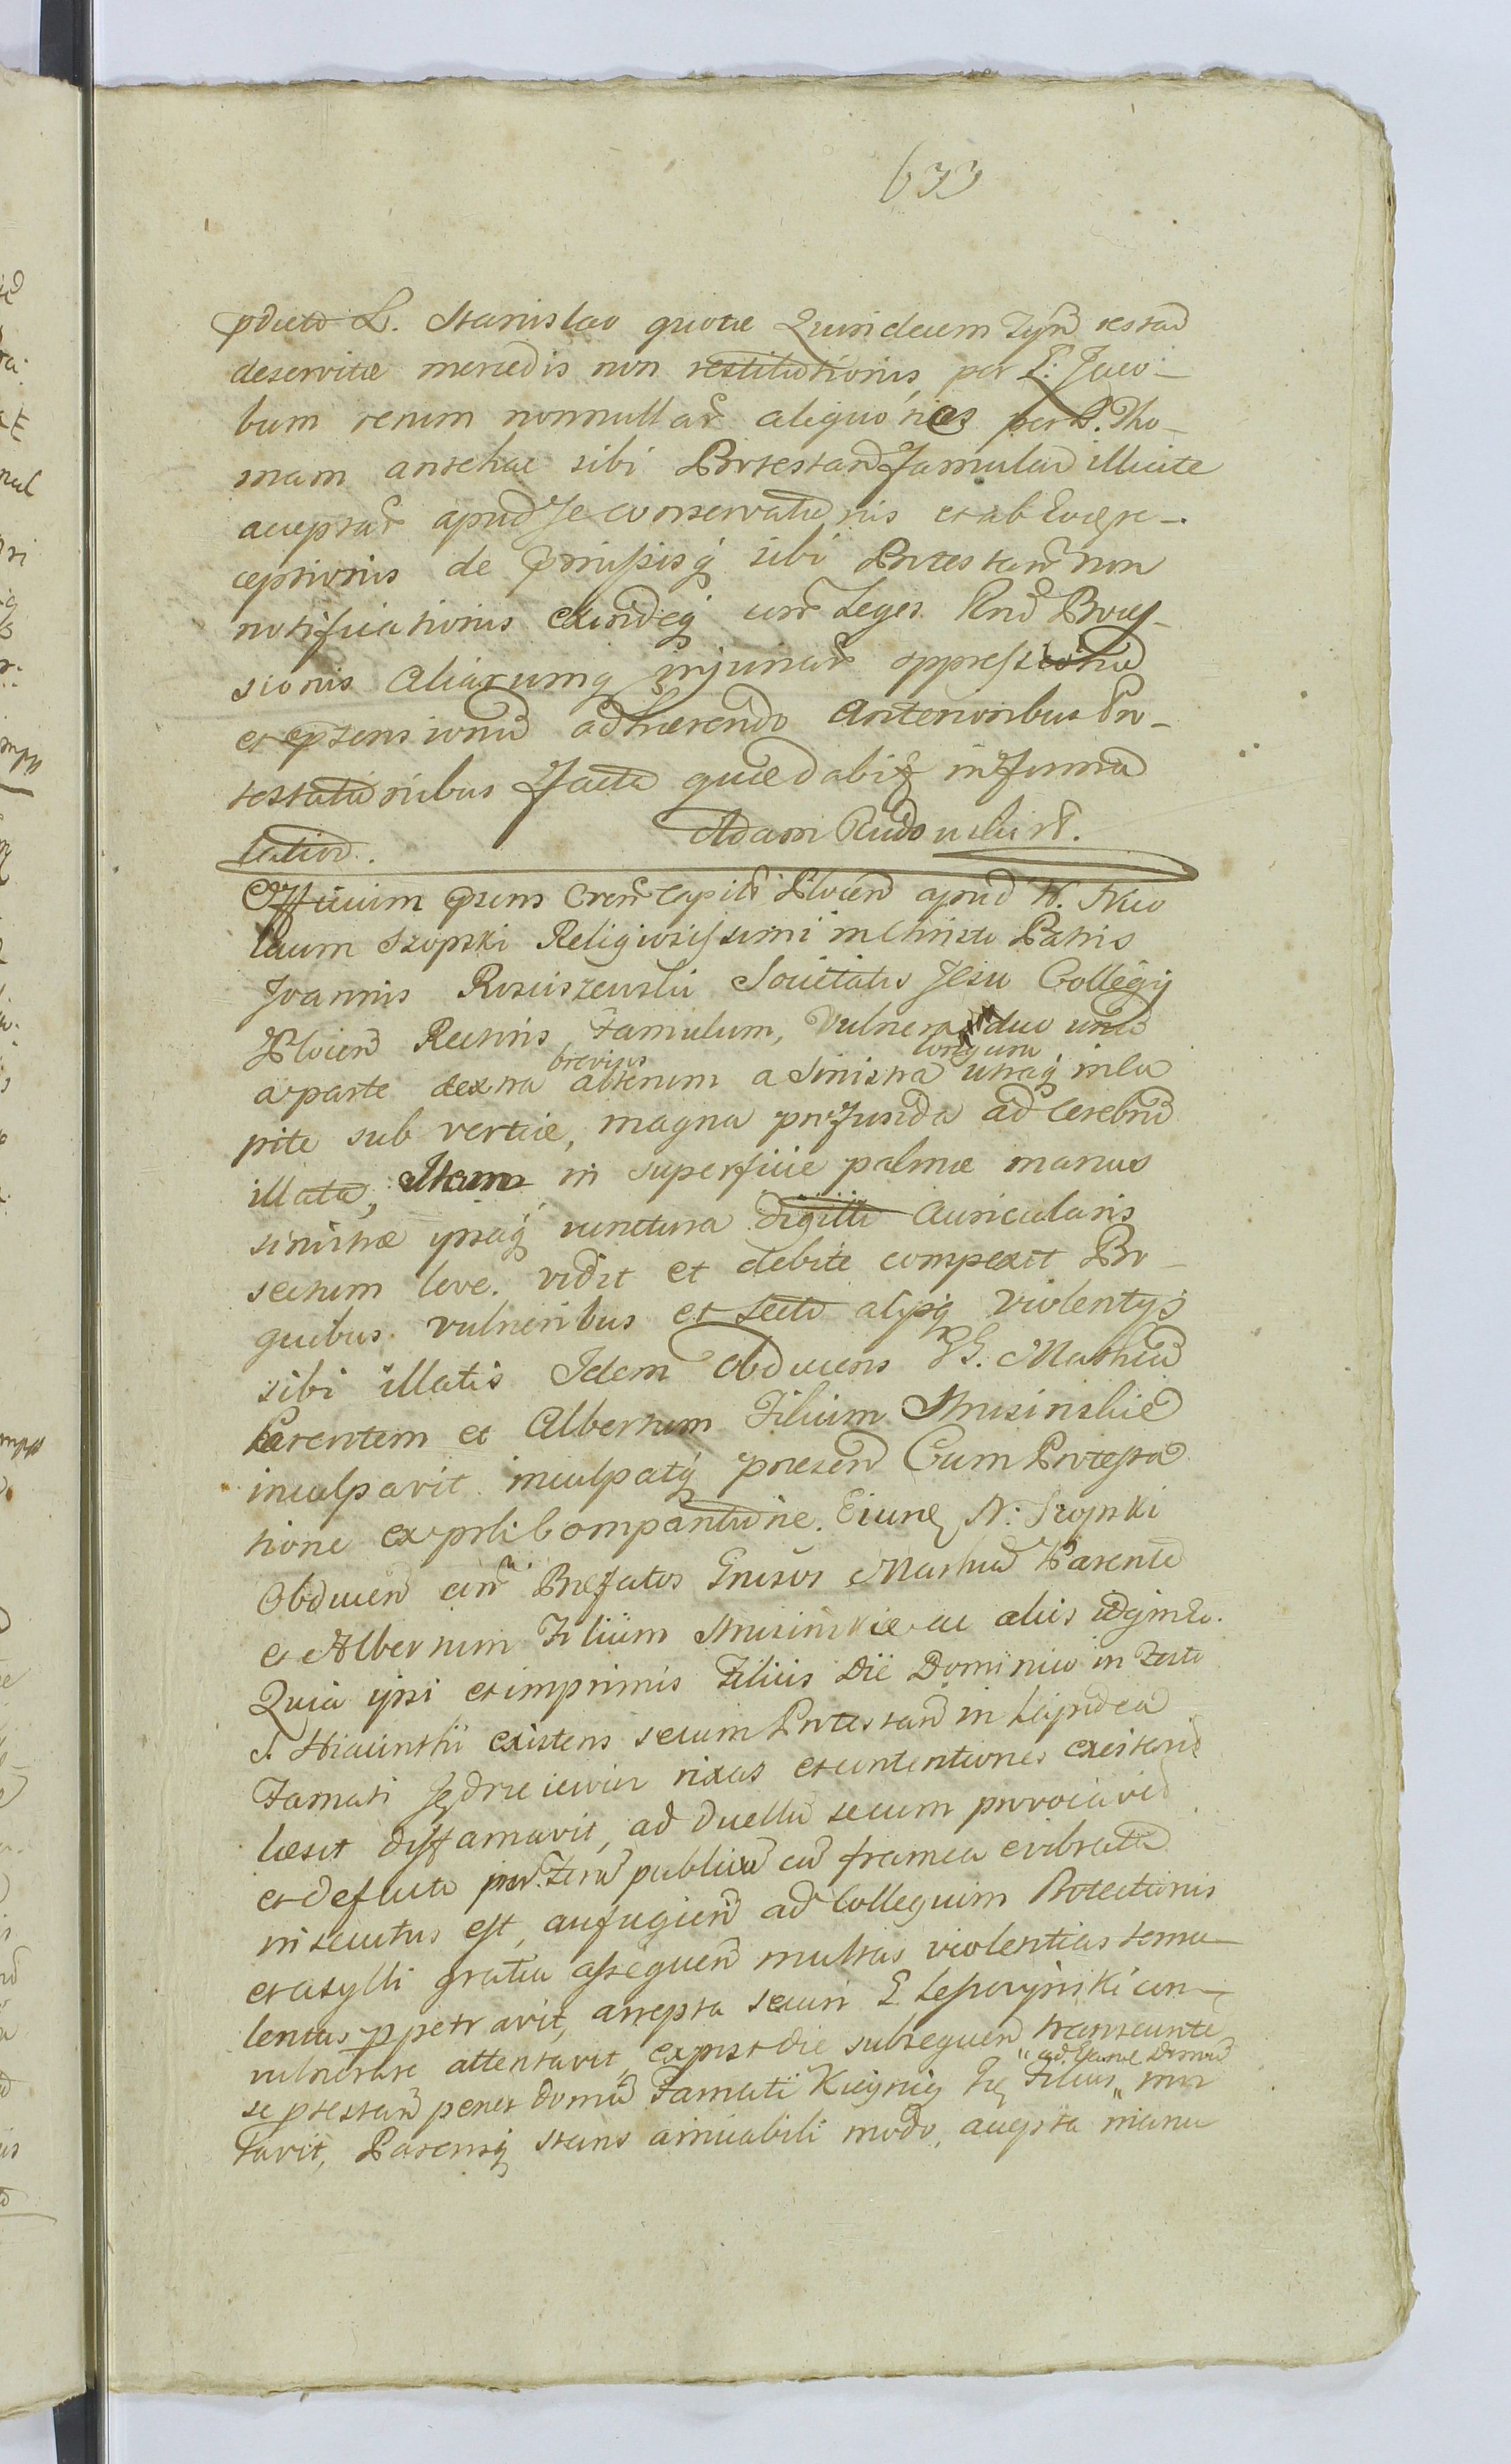 633
pdicto L. Stanislao quotae Quindecim Tÿm restan
deservitae mercedis non restitutionis, per L: Jaco-
bum rerum nonnullar aliquoties per L. Tho-
mam antehac sibi Protestan famulan illicite
acceptar apud se conservationis et ab Eo
ceptionis de praemissisq sibi Protestan non
notificationis exindeq con Leges Rni
sionis Aliarumq injuriar oppressionu
et extensionu adhaerendo Anterioribus Pro-
testationibus facta quae dabit in forma
latior. Adam Rudowski
Officium prens Cren Capitle Plocen apud N. Nico
laum Szopski Religiosissimi in Christo Patris
Joannis Rosciszewski Societatis Jesu Collegÿ
Plocen Rectoris Famulum, Vulnera duo unu
a parte dextra brevius alterum a Sinistra longum utraq in Ca
pite sub vertice, magna profunda ad Cerebru
illata, Item in superficie palmae manus
sinistrae ipsaq iunctura digiti Auricularis
sectum leve. vidit et debite compexit Pro
quibus vulneribus et secto alÿsq violentÿs
sibi illatis Idem Obducens GG. Mathia
Parentem et Albertum Filium Strusinskie
inculpavit inculpatq presen Cum Protesta
tione ex prli Compantione. Eiusd N: Szopski
Obducen con Praefatos Gnrsos Mathia Parente
et Albertum Filium Strusinskie ac aliis idq in eo.
Quia ipsi et imprimis Filius Die Dominico in Festo
S. Hiacinthi existens secum Protestan in Lapidea
Famati Jędrzeiewicz rixas et contentiones excitans
laesit diffamavit, ad duellu secum provocavit
et de facto publica cu framea evibrata
insecutus est, aufugien ad Collegium Protectionis
et asylli gratia assequen multas violentias temu
lentus ppetravit, arrepta securi L. con
vulnerare attentavit, ex post die subsequen transeunte
se ptestan penes domu Famati Filius ad Eande Domu invi
tavit, Parensq stans amicabili modo, accepta manu